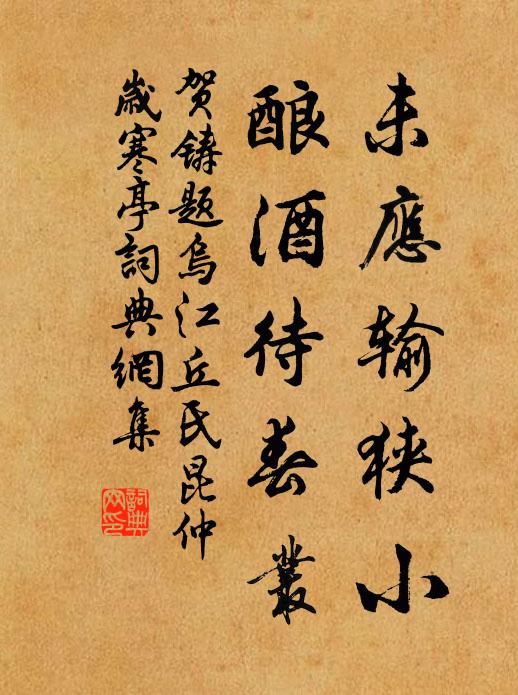 未應输狭小
酿酒待春叢
贺鑄题烏江丘氏昆仲
歲寒亭詞典網集
詞典网印